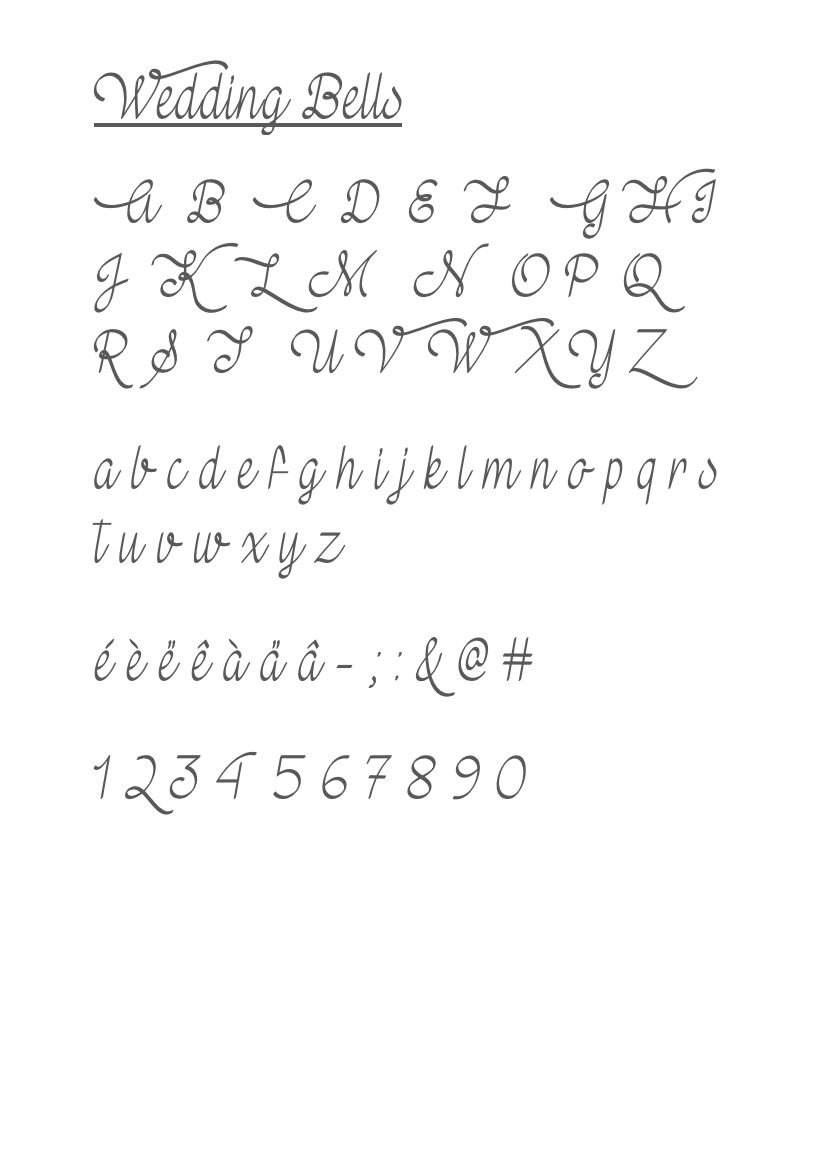 Wedding Bells
A B C D E F G H I
J K L M N O P Q
R S T U V W X Y Z
a b c d e f g h i j k l m n o p q r s
t u v w x y z
é è ë ê à ä â - ; : & @ #
1 2 3 4 5 6 7 8 9 0